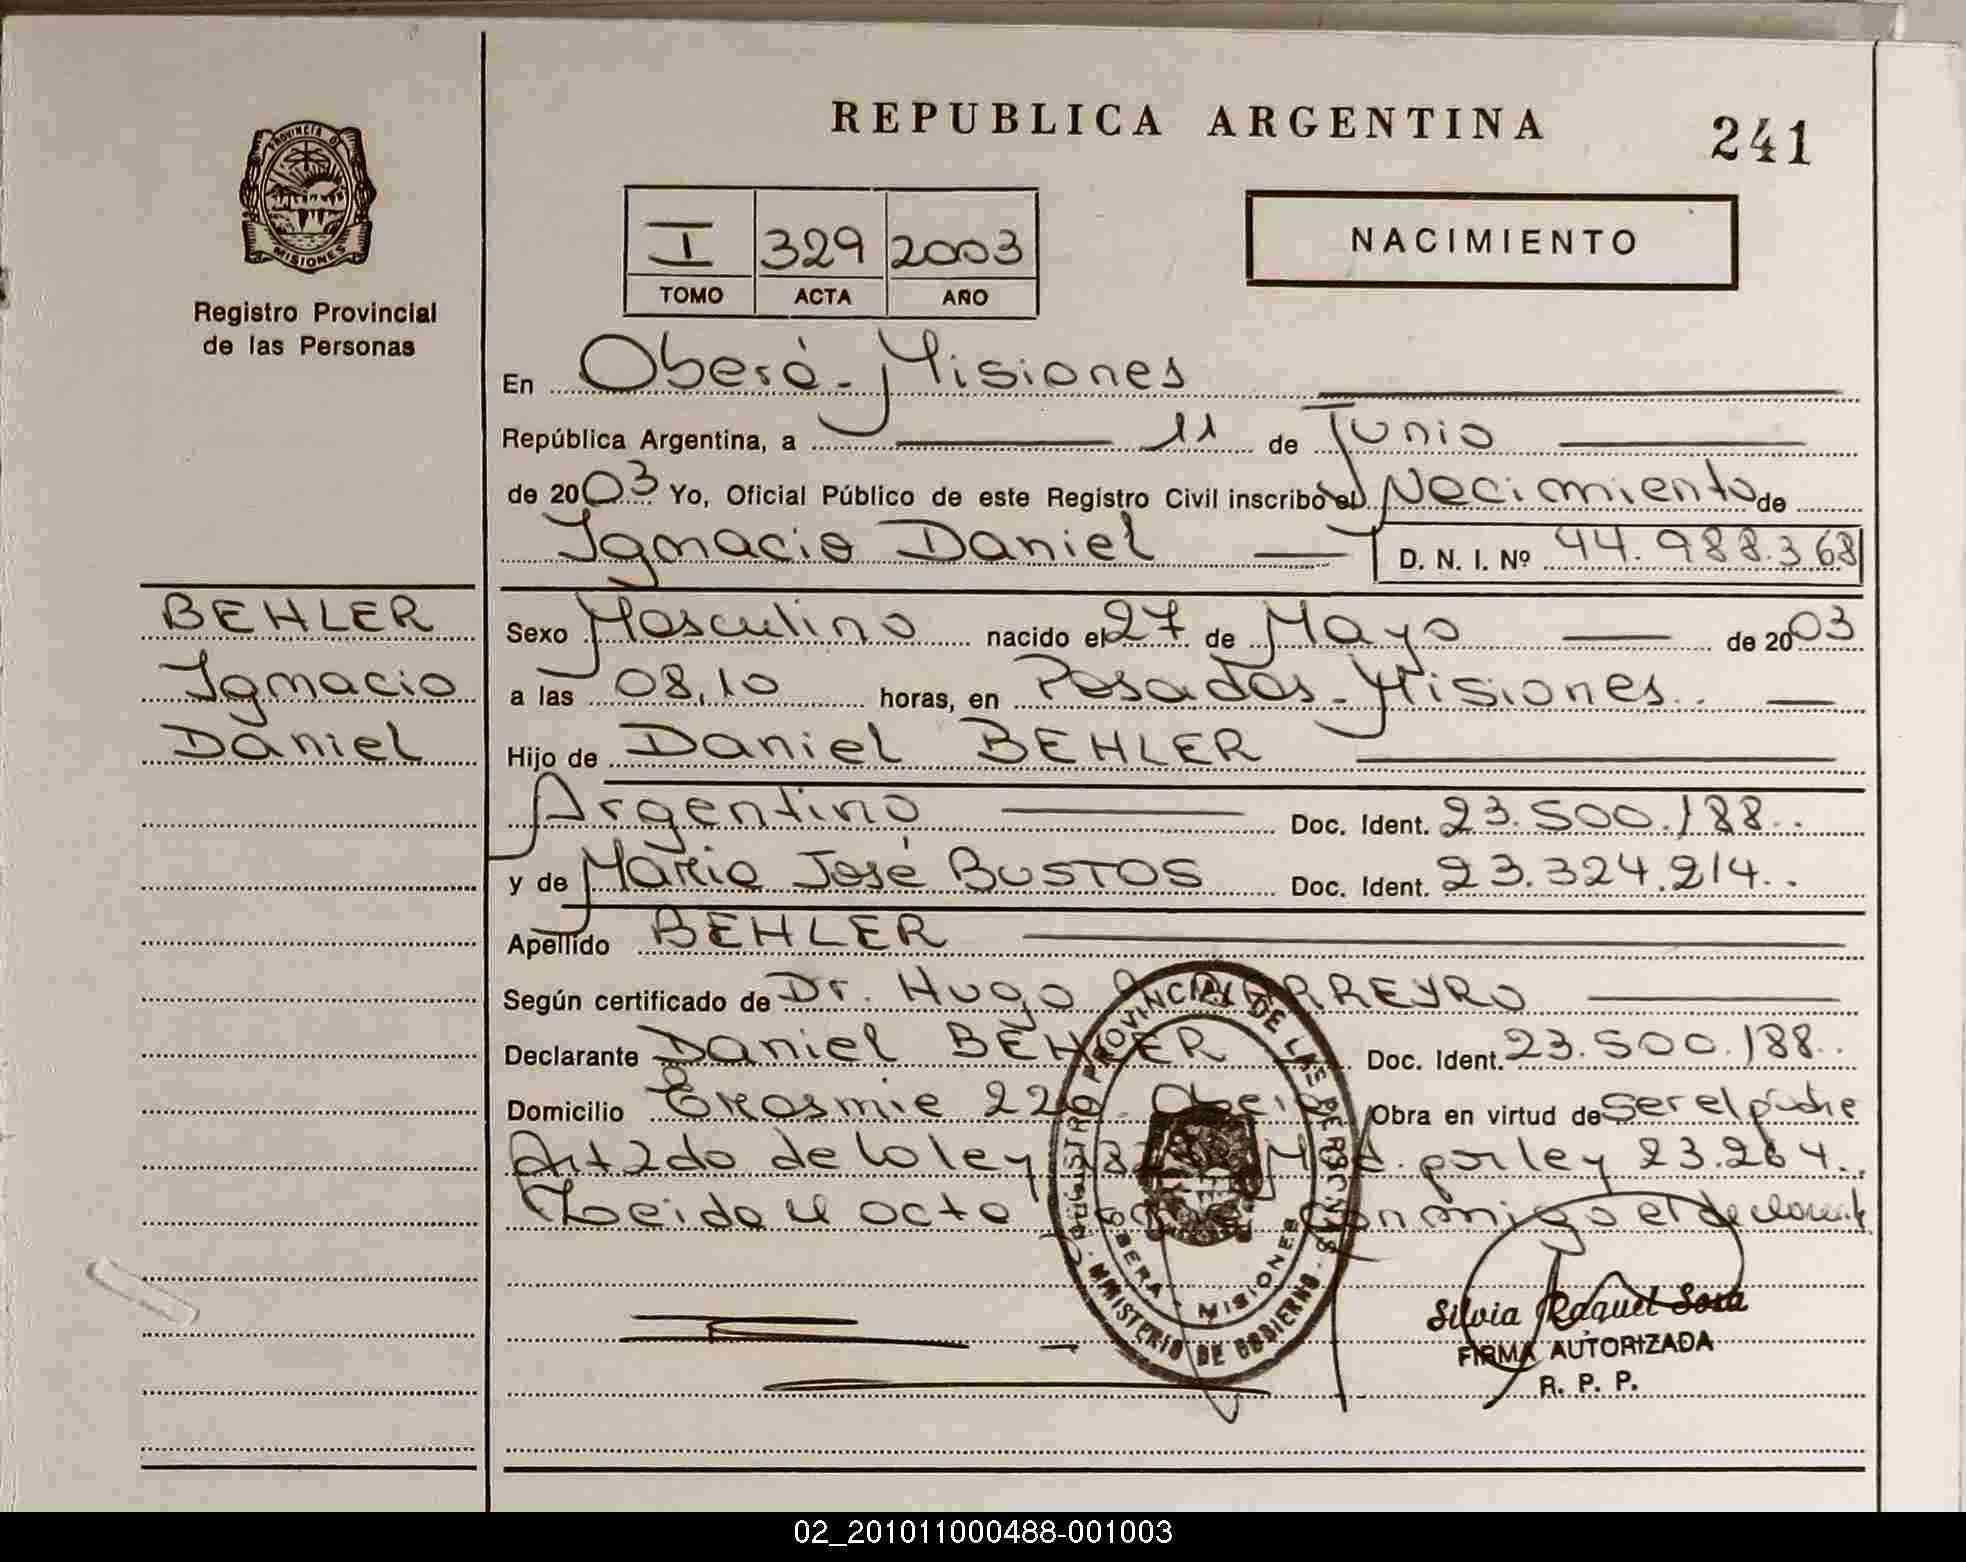 REPUBLICA ARGENTINA
241
PROVINCIA DE
MISIONES
Registro Provincial
de las Personas
I 329 2003
TOMO ACTA AÑO
NACIMIENTO
En Oberá - Misiones
República Argentina, a 11 de Junio
de 2003 Yo, Oficial Público de este Registro Civil inscribo el Nacimiento de
Ignacio Daniel D. N. I. Nº 44.988.368
BEHLER
Ignacio
Daniel
Sexo Masculino nacido el 27 de Mayo de 2003
a las 08,10 horas, en Posadas - Misiones
Hijo de Daniel BEHLER
Argentino Doc. Ident. 23.500.188
y de María José BUSTOS Doc. Ident. 23.324.214
Apellido BEHLER
Según certificado de Dr. Hugo
Declarante Daniel BEHLER Doc. Ident. 23.500.188
Domicilio Oberá Obra en virtud de ser el padre
Art 2do de la ley por ley 23.264
Leida el acta conmigo el declarante
REGISTRO PROVINCIAL DE LAS PERSONAS
OBERA - MISIONES
MINISTERIO DE GOBIERNO
Silvia Raquel Sosa
FIRMA AUTORIZADA
R. P. P.
02_201011000488-001003